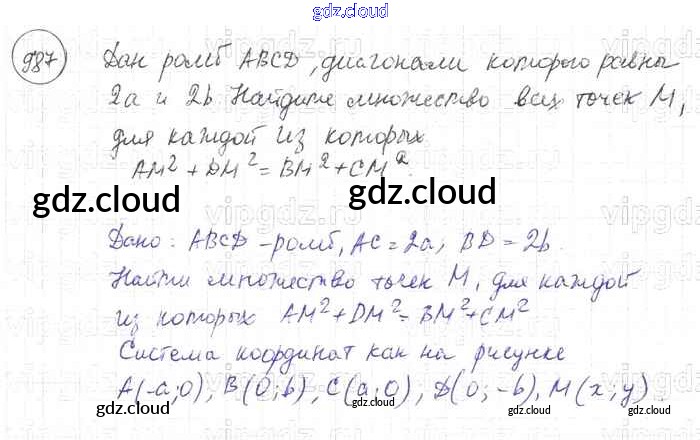 gdz.cloud
987) Дан ромб ABCD, диагонали которого равны
2a и 2b. Найдите множество всех точек M,
для каждой из которых
AM² + DM² = BM² + CM².
gdz.cloud gdz.cloud
Дано: ABCD - ромб, AC = 2a, BD = 2b.
Найти множество точек M, для каждой
из которых AM² + DM² = BM² + CM²
Система координат как на рисунке
A(-a;0), B(0;b), C(a;0), D(0;-b), M(x;y).
gdz.cloud gdz.cloud
gdz.cloud